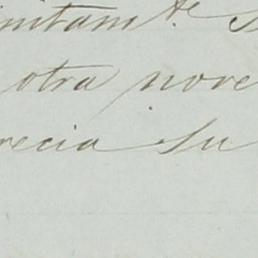 initamte
otra nove
recia su